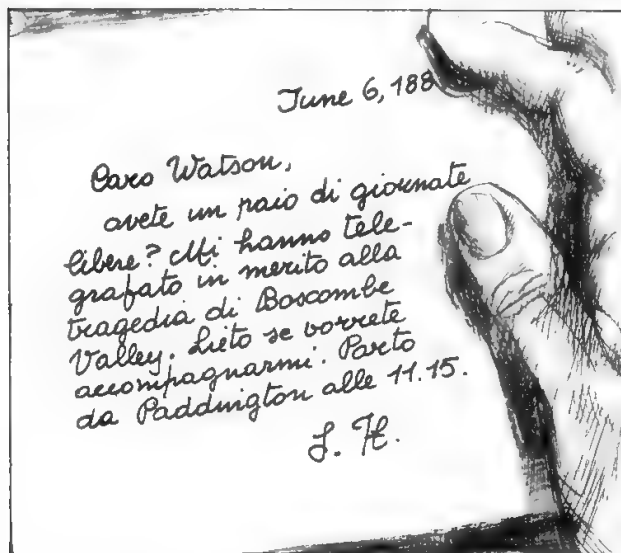 June 6, 188
Caro Watson,
avete un paio di giornate
libere? Mi hanno tele-
grafato in merito alla
tragedia di Boscombe
Valley. Lieto se vorrete
accompagnarmi. Parto
da Paddington alle 11.15.
S. H.